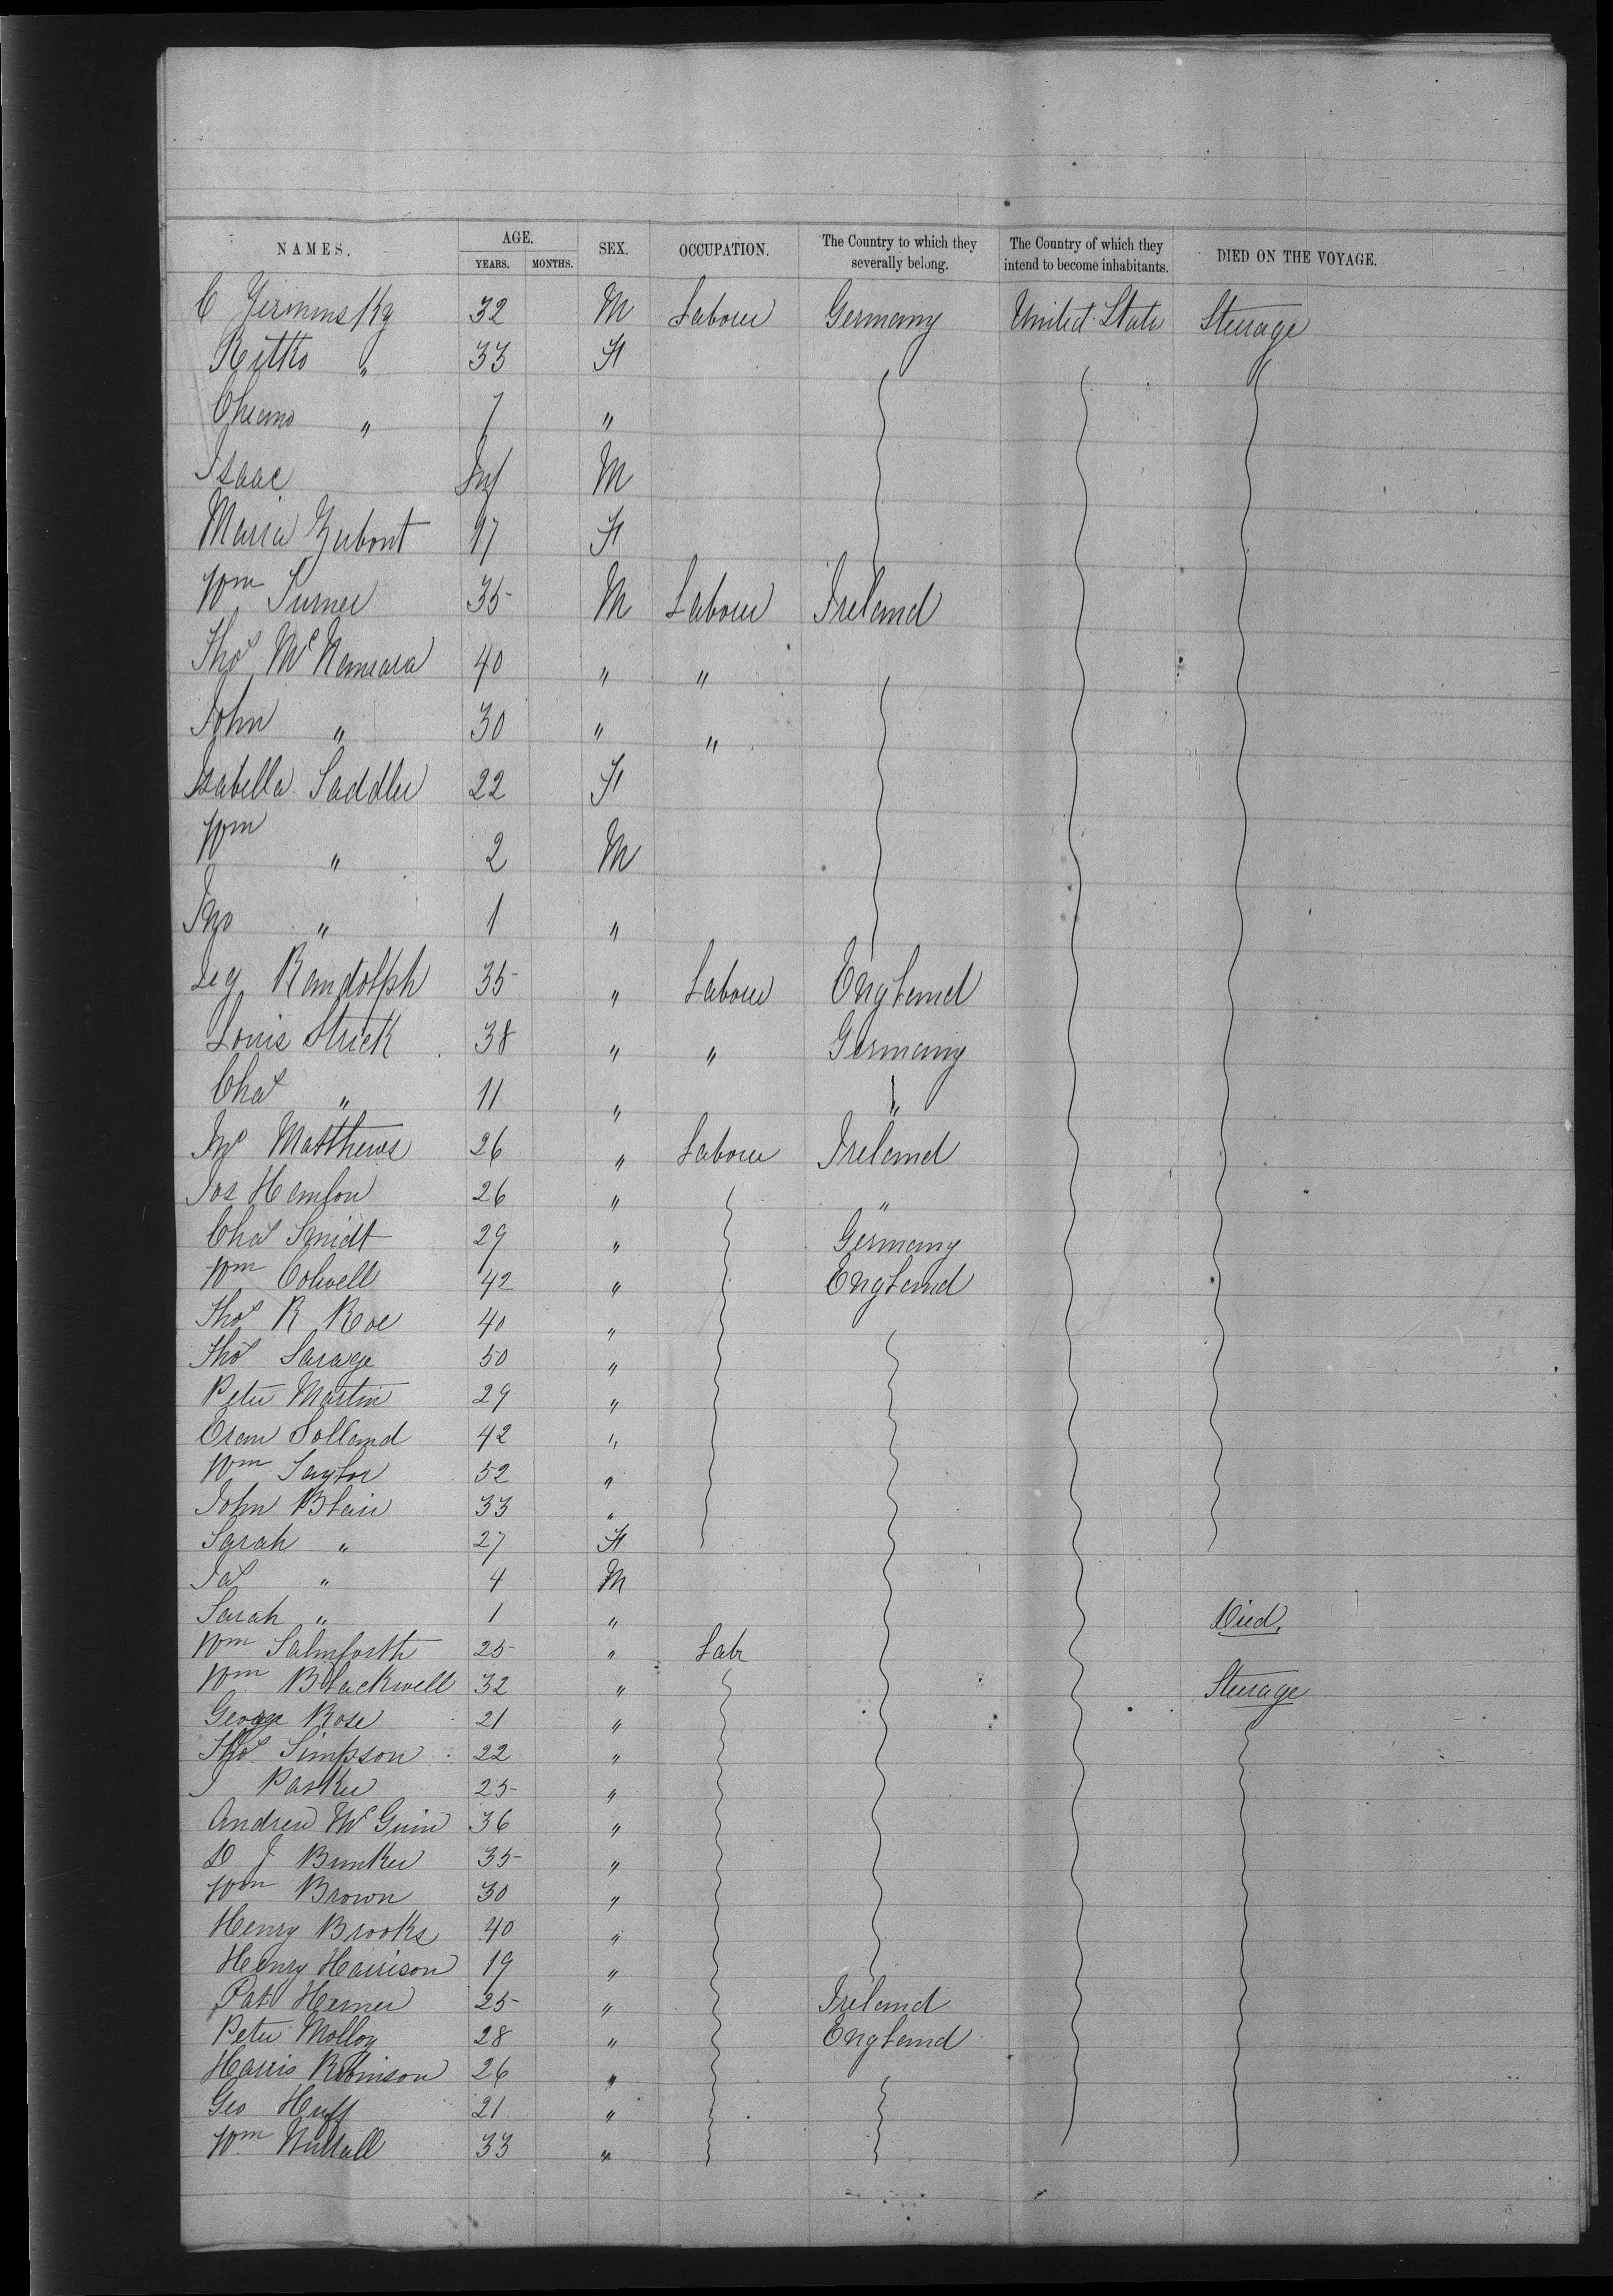 NAMES. AGE. SEX. OCCUPATION. The Country to which they severally belong. The Country of which they intend to become inhabitants. DIED ON THE VOYAGE.
YEARS. MONTHS.
C 32 M Labour Germany United State Steerage
" 33 F
" 7 "
Isaac Inf M
Maria 17 F
Wm Turner 35 M Labour Ireland
Thos McNamara 40 " "
John " 30 " "
Isabella Saddler 22 F
Wm " 2 M
Jno " 1 "
Randolph 35 " Labour England
Louis Strick 38 " " Germany
Chas " 11 " "
Jno Matthews 26 " Labour Ireland
Jos Hanlon 26 " "
Chas Smidt 29 " Germany
Wm Colwell 42 " England
Thos R Roe 40 "
Thos Savage 50 "
Peter Martin 29 "
Holland 42 "
Wm Taylor 52 "
John Blair 33 "
Sarah " 27 F
Jas " 4 M
Sarah " 1 " Died
Wm Salmforth 25 " Labr
Wm Blackwell 32 " Steerage
George Rose 21 "
Thos Simpson 22 "
J Parker 25 "
Andrew McGuin 36 "
D J Bunker 35 "
Wm Brown 30 "
Henry Brooks 40 "
Henry Harrison 19 "
Pat 25 " Ireland
Peter Molloy 28 " England
Harris Robinson 26 "
Geo Huff 21 "
Wm Nuttall 33 "